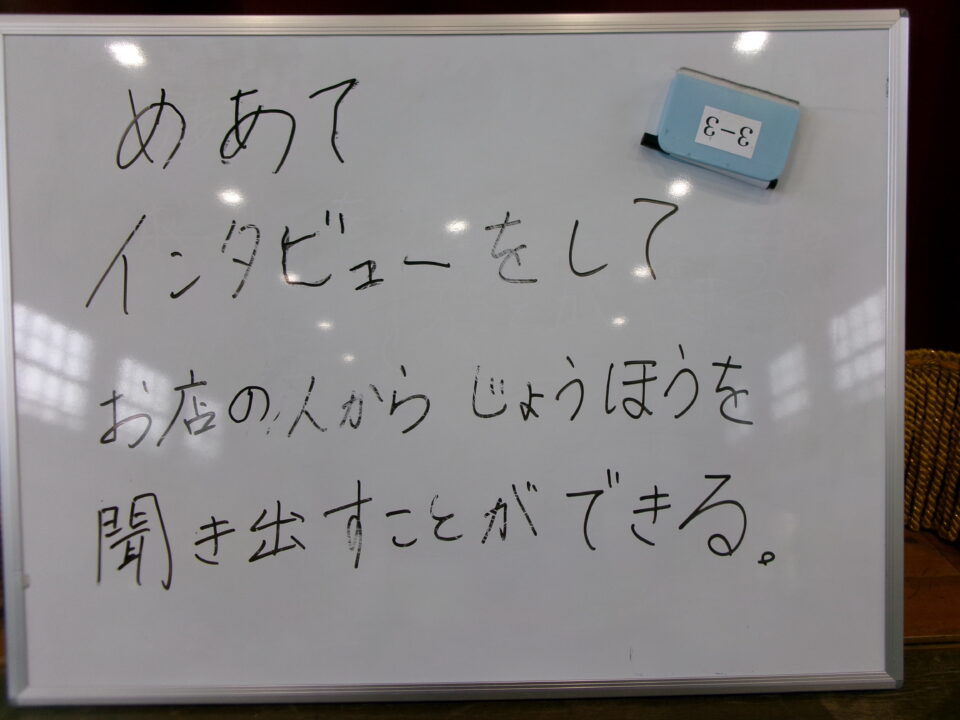 めあて
3-3
インタビューをして
お店の人から じょうほうを
聞き出すことができる。